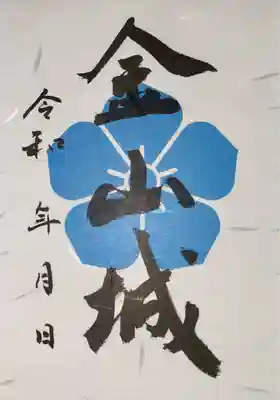 金山城
令和 年 月 日